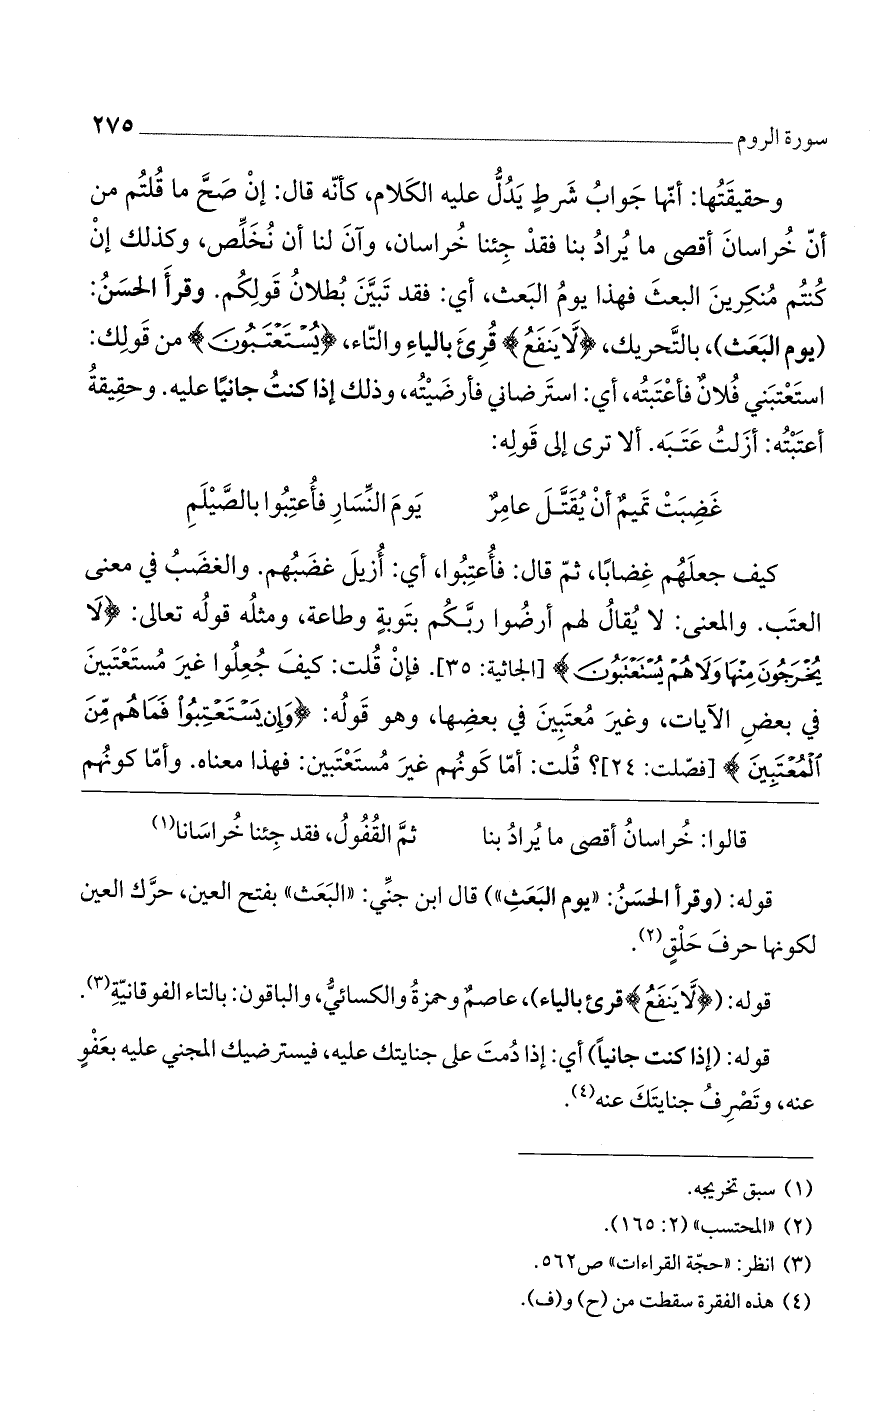 سورة الروم ٢٧٥
وحقيقَتُها: أنّها جَوابُ شَرطٍ يَدُلُّ عليه الكَلام، كأنّه قال: إنْ صَحَّ ما قُلتُم من
أنّ خُراسانَ أقصى ما يُرادُ بنا فقدْ جِئنا خُراسان، وآنَ لنا أن نُخَلِّص، وكذلك إنْ
كُنتُم مُنكِرينَ البعثَ فهذا يومُ البَعث، أي: فقد تَبيَّنَ بُطلانُ قَولِكُم. وقرأَ الحسَنُ:
(يوم البَعَث)، بالتَّحريك، ﴿لَّا يَنفَعُ﴾ قُرِئَ بالياءِ والتّاء، ﴿يُسْتَعْتَبُونَ﴾ من قَولِك:
استَعْتَبَني فُلانٌ فأعْتَبتُه، أي: استَرضاني فأرضَيْتُه، وذلك إذا كنتُ جانيًا عليه. وحقِيقةُ
أعتَبْتُه: أزَلتُ عَتَبَه. ألا ترى إلى قَولِه:
غَضِبَتْ تَميمٌ أنْ يُقَتَّلَ عامِرٌ يَومَ النِّسَارِ فأُعتِبُوا بالصَّيْلَمِ
كيف جعلَهُم غِضابًا، ثمّ قال: فأُعتِبُوا، أي: أُزيلَ غضَبُهم. والغضَبُ في معنى
العتَب. والمعنى: لا يُقالُ لهم أرضُوا ربَّكُم بتَوبةٍ وطاعة، ومثلُه قولُه تعالى: ﴿لَا
يُخْرَجُونَ مِنْهَا وَلَا هُمْ يُسْتَعْتَبُونَ﴾ [الجاثية: ٣٥]. فإنْ قُلت: كيفَ جُعِلُوا غيرَ مُستَعْتَبينَ
في بعضِ الآيات، وغيرَ مُعتَبِينَ في بعضِها، وهو قَولُه: ﴿وَإِن يَسْتَعْتِبُوا۟ فَمَا هُم مِّنَ
ٱلْمُعْتَبِينَ﴾ [فصّلت: ٢٤]؟ قُلت: أمّا كَونُهم غيرَ مُستَعْتَبين: فهذا معناه. وأمّا كونُهم
قالوا: خُراسانُ أقصى ما يُرادُ بنا ثمَّ القُفُولُ، فقد جِئنا خُراسَانا(١)
قوله: (وقرأ الحسَنُ: «يوم البَعَثِ») قال ابن جنِّي: «البَعَث» بفتح العين، حرَّك العين
لكونها حرفَ حَلْقٍ(٢).
قوله: (﴿لَّا يَنفَعُ﴾ قرئ بالياء)، عاصمٌ وحمزةُ والكسائيُّ، والباقون: بالتاء الفوقانيّةِ(٣).
قوله: (إذا كنت جانياً) أي: إذا دُمتَ على جنايتك عليه، فيسترضيك المجني عليه بعَفْوٍ
عنه، وتَصْرِفُ جنايتَكَ عنه(٤).
(١) سبق تخريجه.
(٢) «المحتسب» (٢: ١٦٥).
(٣) انظر: «حجّة القراءات» ص٥٦٢.
(٤) هذه الفقرة سقطت من (ح) و(ف).